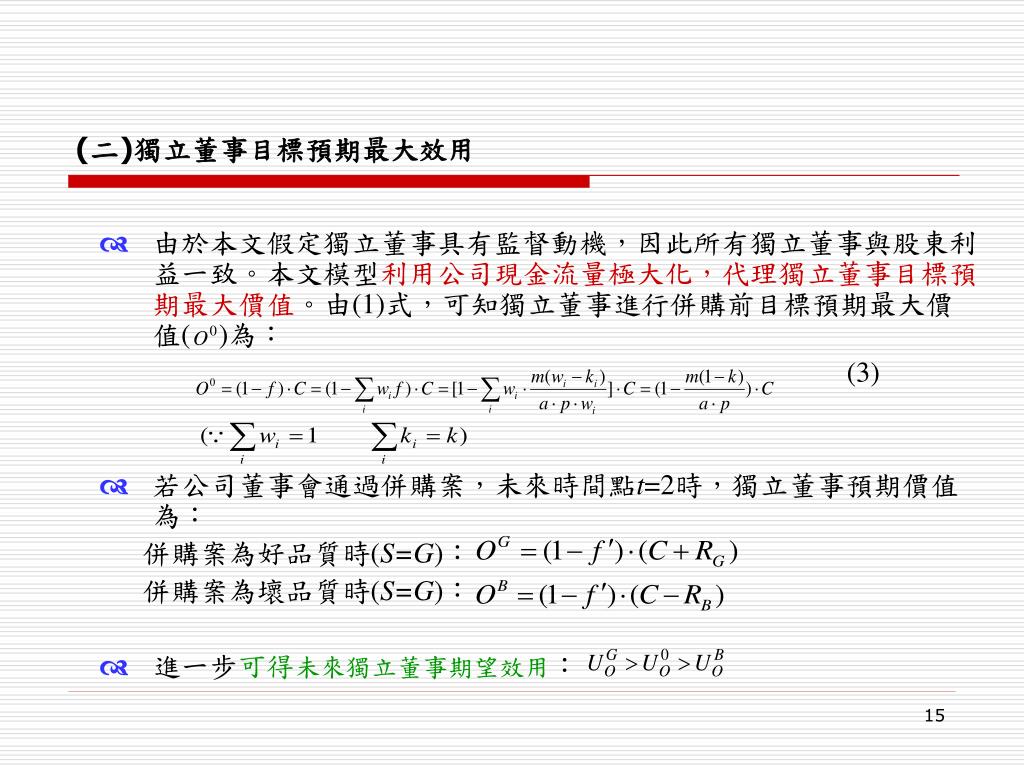 (二)獨立董事目標預期最大效用
由於本文假定獨立董事具有監督動機，因此所有獨立董事與股東利
益一致。本文模型利用公司現金流量極大化，代理獨立董事目標預
期最大價值。由(1)式，可知獨立董事進行併購前目標預期最大價
值(O⁰)為：
O⁰ = (1 − f)·C = (1 − ∑_i w_i f)·C = [1 − ∑_i w_i · m(w_i − k_i)/(a·p·w_i)]·C = (1 − m(1 − k)/(a·p))·C (3)
(∵ ∑_i w_i = 1 ∑_i k_i = k)
若公司董事會通過併購案，未來時間點t=2時，獨立董事預期價值
為：
併購案為好品質時(S=G)：O^G = (1 − f′)·(C + R_G)
併購案為壞品質時(S=G)：O^B = (1 − f′)·(C − R_B)
進一步可得未來獨立董事期望效用：U_O^G > U_O^0 > U_O^B
15